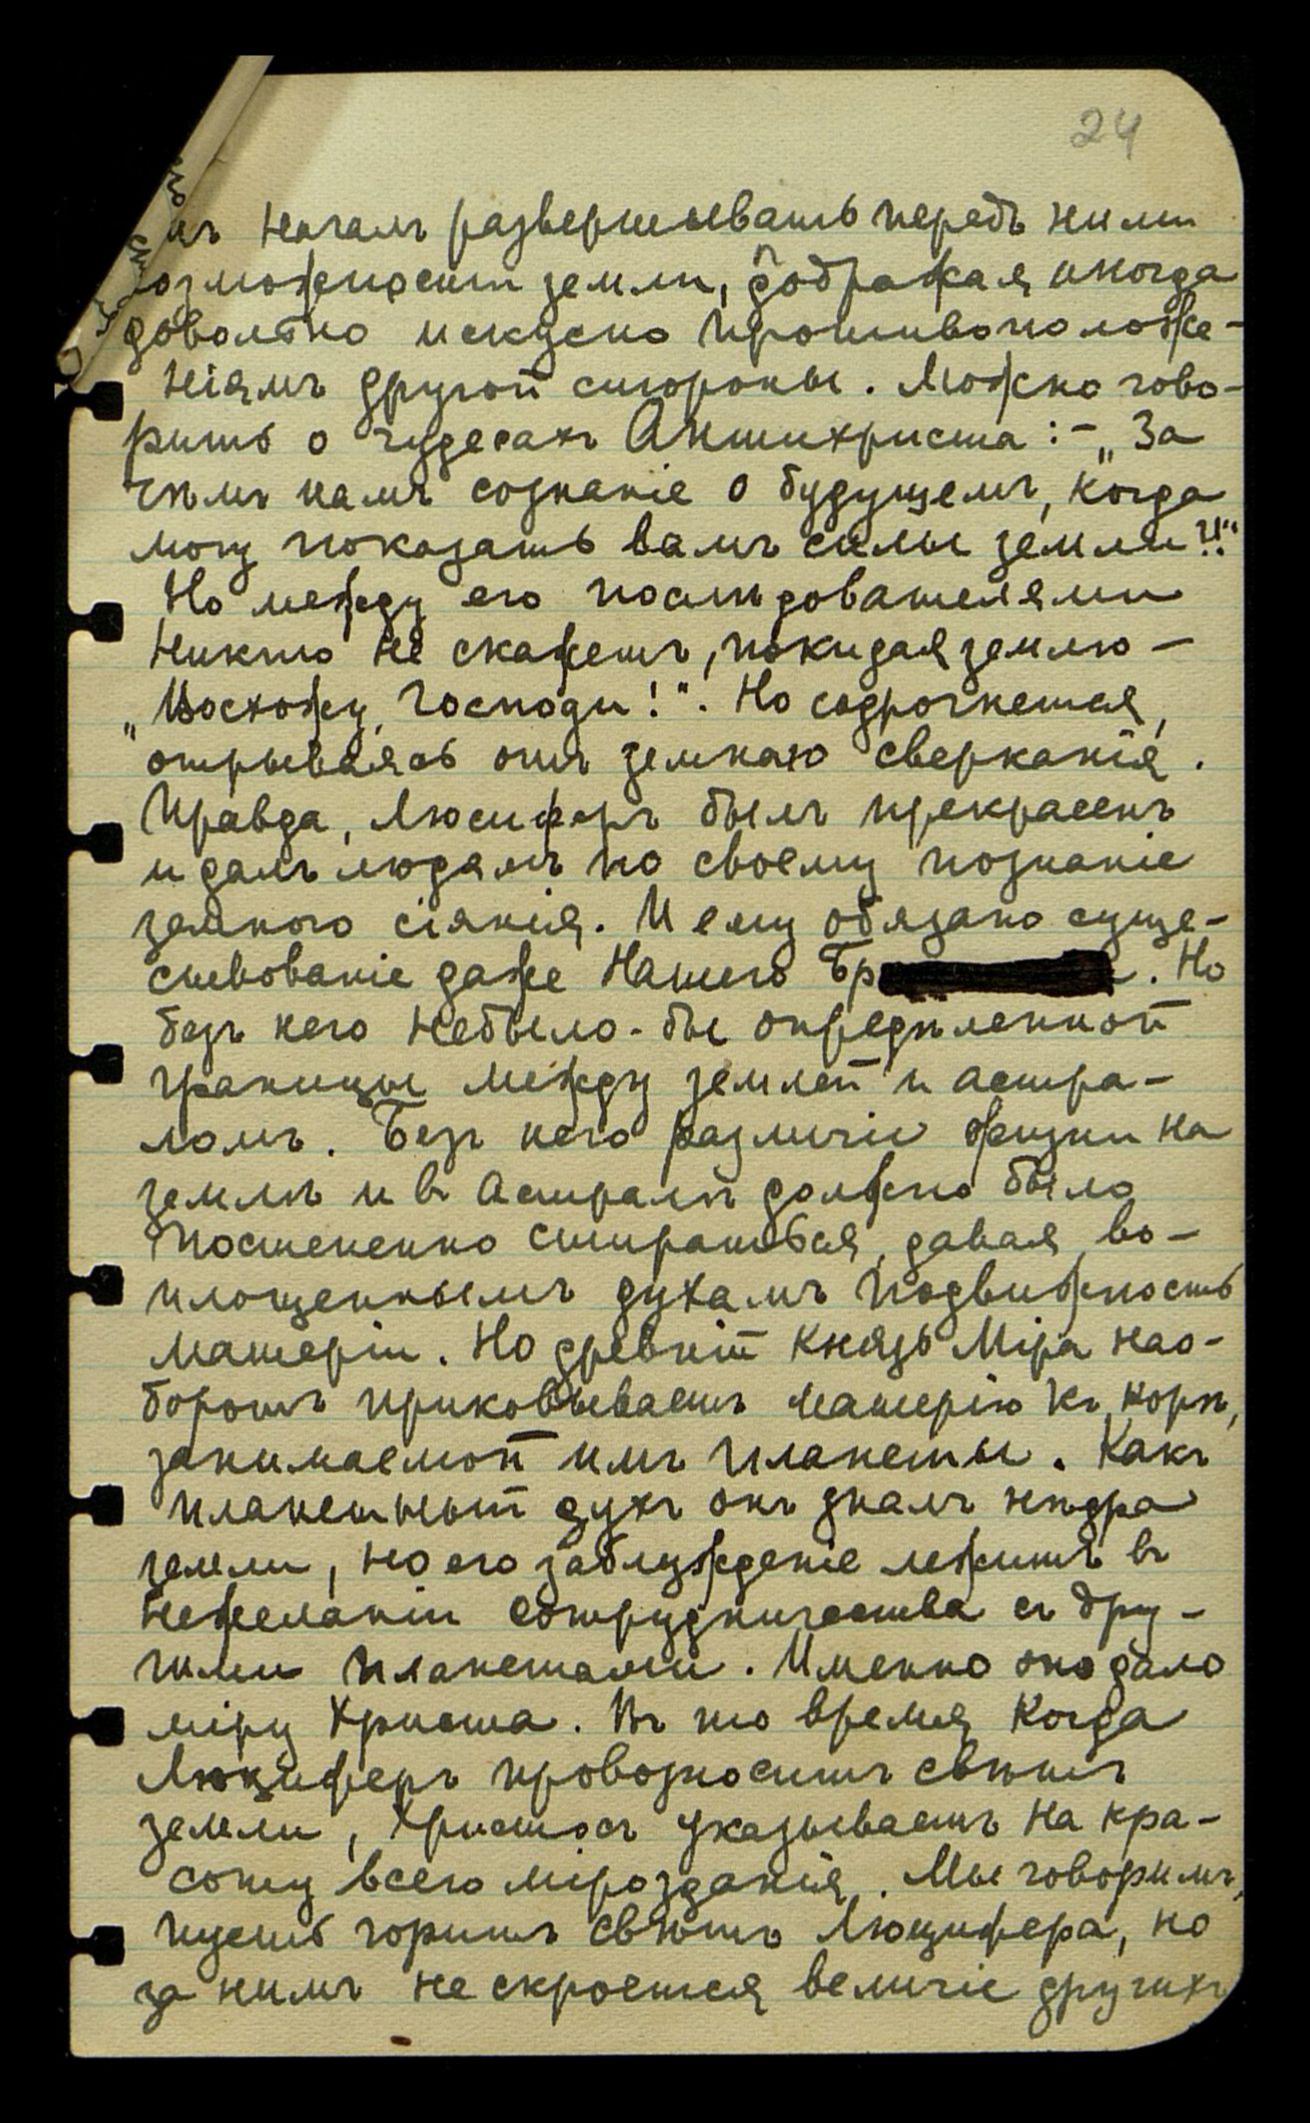 24
началъ развертывать передъ ними
озможности земли, подражая иногда
довольно искусно противоположе-
ніямъ другой стороны. Можно гово-
рить о чудесахъ Антихриста :- „За
чѣмъ намъ сознаніе о будущемъ, когда
могу показать вамъ силы земли?!“
Но между его послѣдователями
никто не скажетъ, покидая землю –
„Восхожу, Господи!“. Но содрогнется,
отрываясь отъ земнаго сверканія.
Правда, Люсиферъ былъ прекрасенъ
и далъ людямъ по своему познаніе
земного сіянія. И ему обязано суще-
ствованіе даже Нашего Бр . Но
безъ него небыло-бы опредѣленной
границы между землей и астра-
ломъ. Безъ него различіе жизни на
землѣ и въ Астралѣ должно было
постепенно стираться, давая во-
площеннымъ духамъ подвижность
матеріи. Но древній Князь Міра нао-
боротъ приковываетъ матерію къ корѣ,
занимаемой имъ планеты. Какъ
планетный духъ онъ зналъ нѣдра
земли, но его заблужденіе лежитъ въ
нежеланіи сотрудничества съ дру-
гими планетами. Именно оно дало
міру Христа. Въ то время когда
Люциферъ провозноситъ свѣтъ
земли, Христосъ указываетъ на кра-
соту всего мірозданія. Мы говоримъ,
пусть горитъ свѣтъ Люцифера, но
за нимъ не скроется величіе другихъ